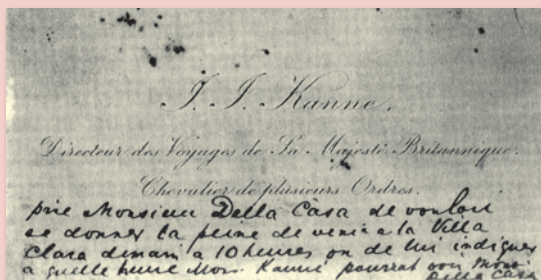 J. J. Kanne.
Directeur des Voyages de Sa Majesté Britannique.
Chevalier de plusieurs Ordres.
prie Monsieur Della Casa de vouloir
se donner la peine de venir a la Villa
Clara demain a 10 heures ou de lui indiquer
a quelle heure Mons. Kanne pourrat voir Mons
Della Casa